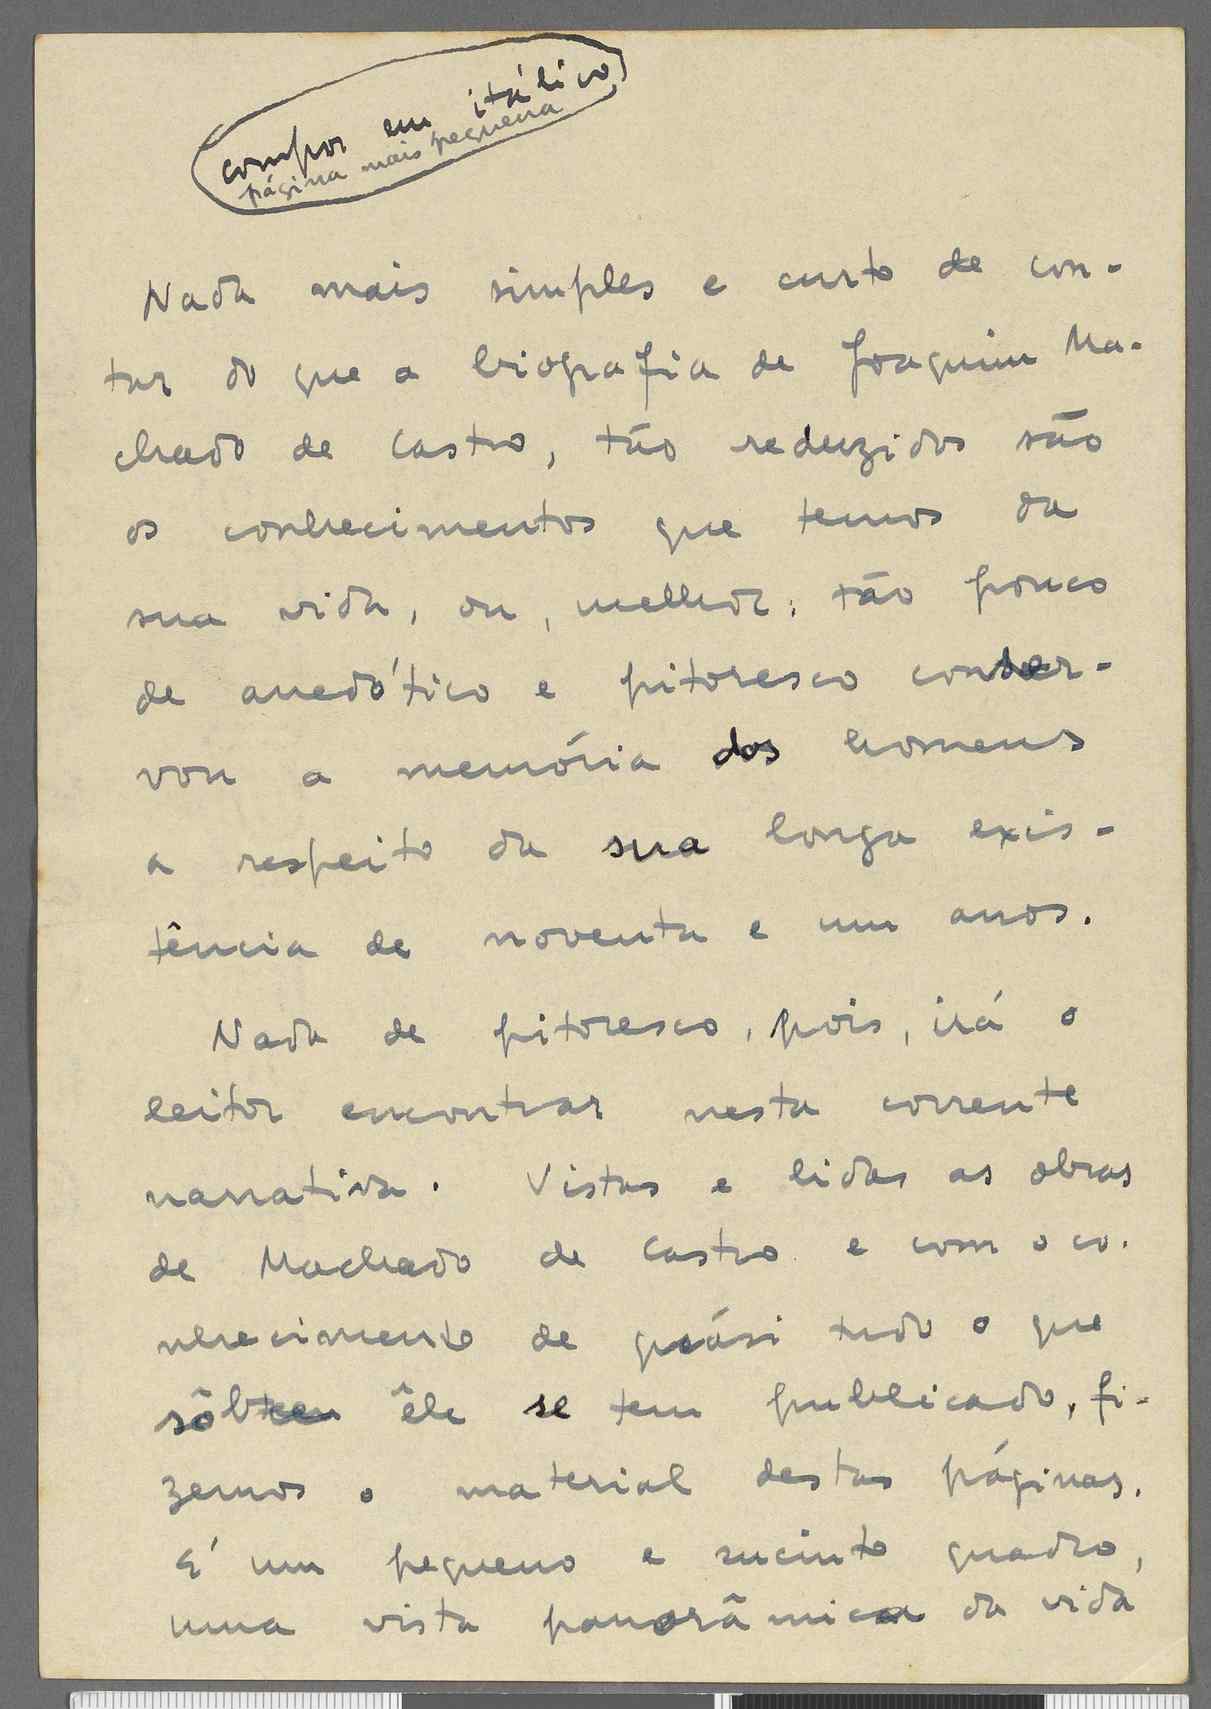 compor em itálico
página mais pequena
Nada mais simples e curto de con-
tar do que a biografia de Joaquim Ma-
chado de Castro, tão reduzidos são
os conhecimentos que temos da
sua vida, ou, melhor, tão pouco
de anedótico e pitoresco conser-
vou a memória dos homens
a respeito da sua longa exis-
tência de noventa e um anos.
Nada de pitoresco, pois, irá o
leitor encontrar nesta corrente
narrativa. Vistas e lidas as obras
de Machado de Castro e com o co-
nhecimento de quási tudo o que
sôbre êle se tem publicado, fi-
zemos o material destas páginas.
É um pequeno e sucinto quadro,
uma vista panorâmica da vida